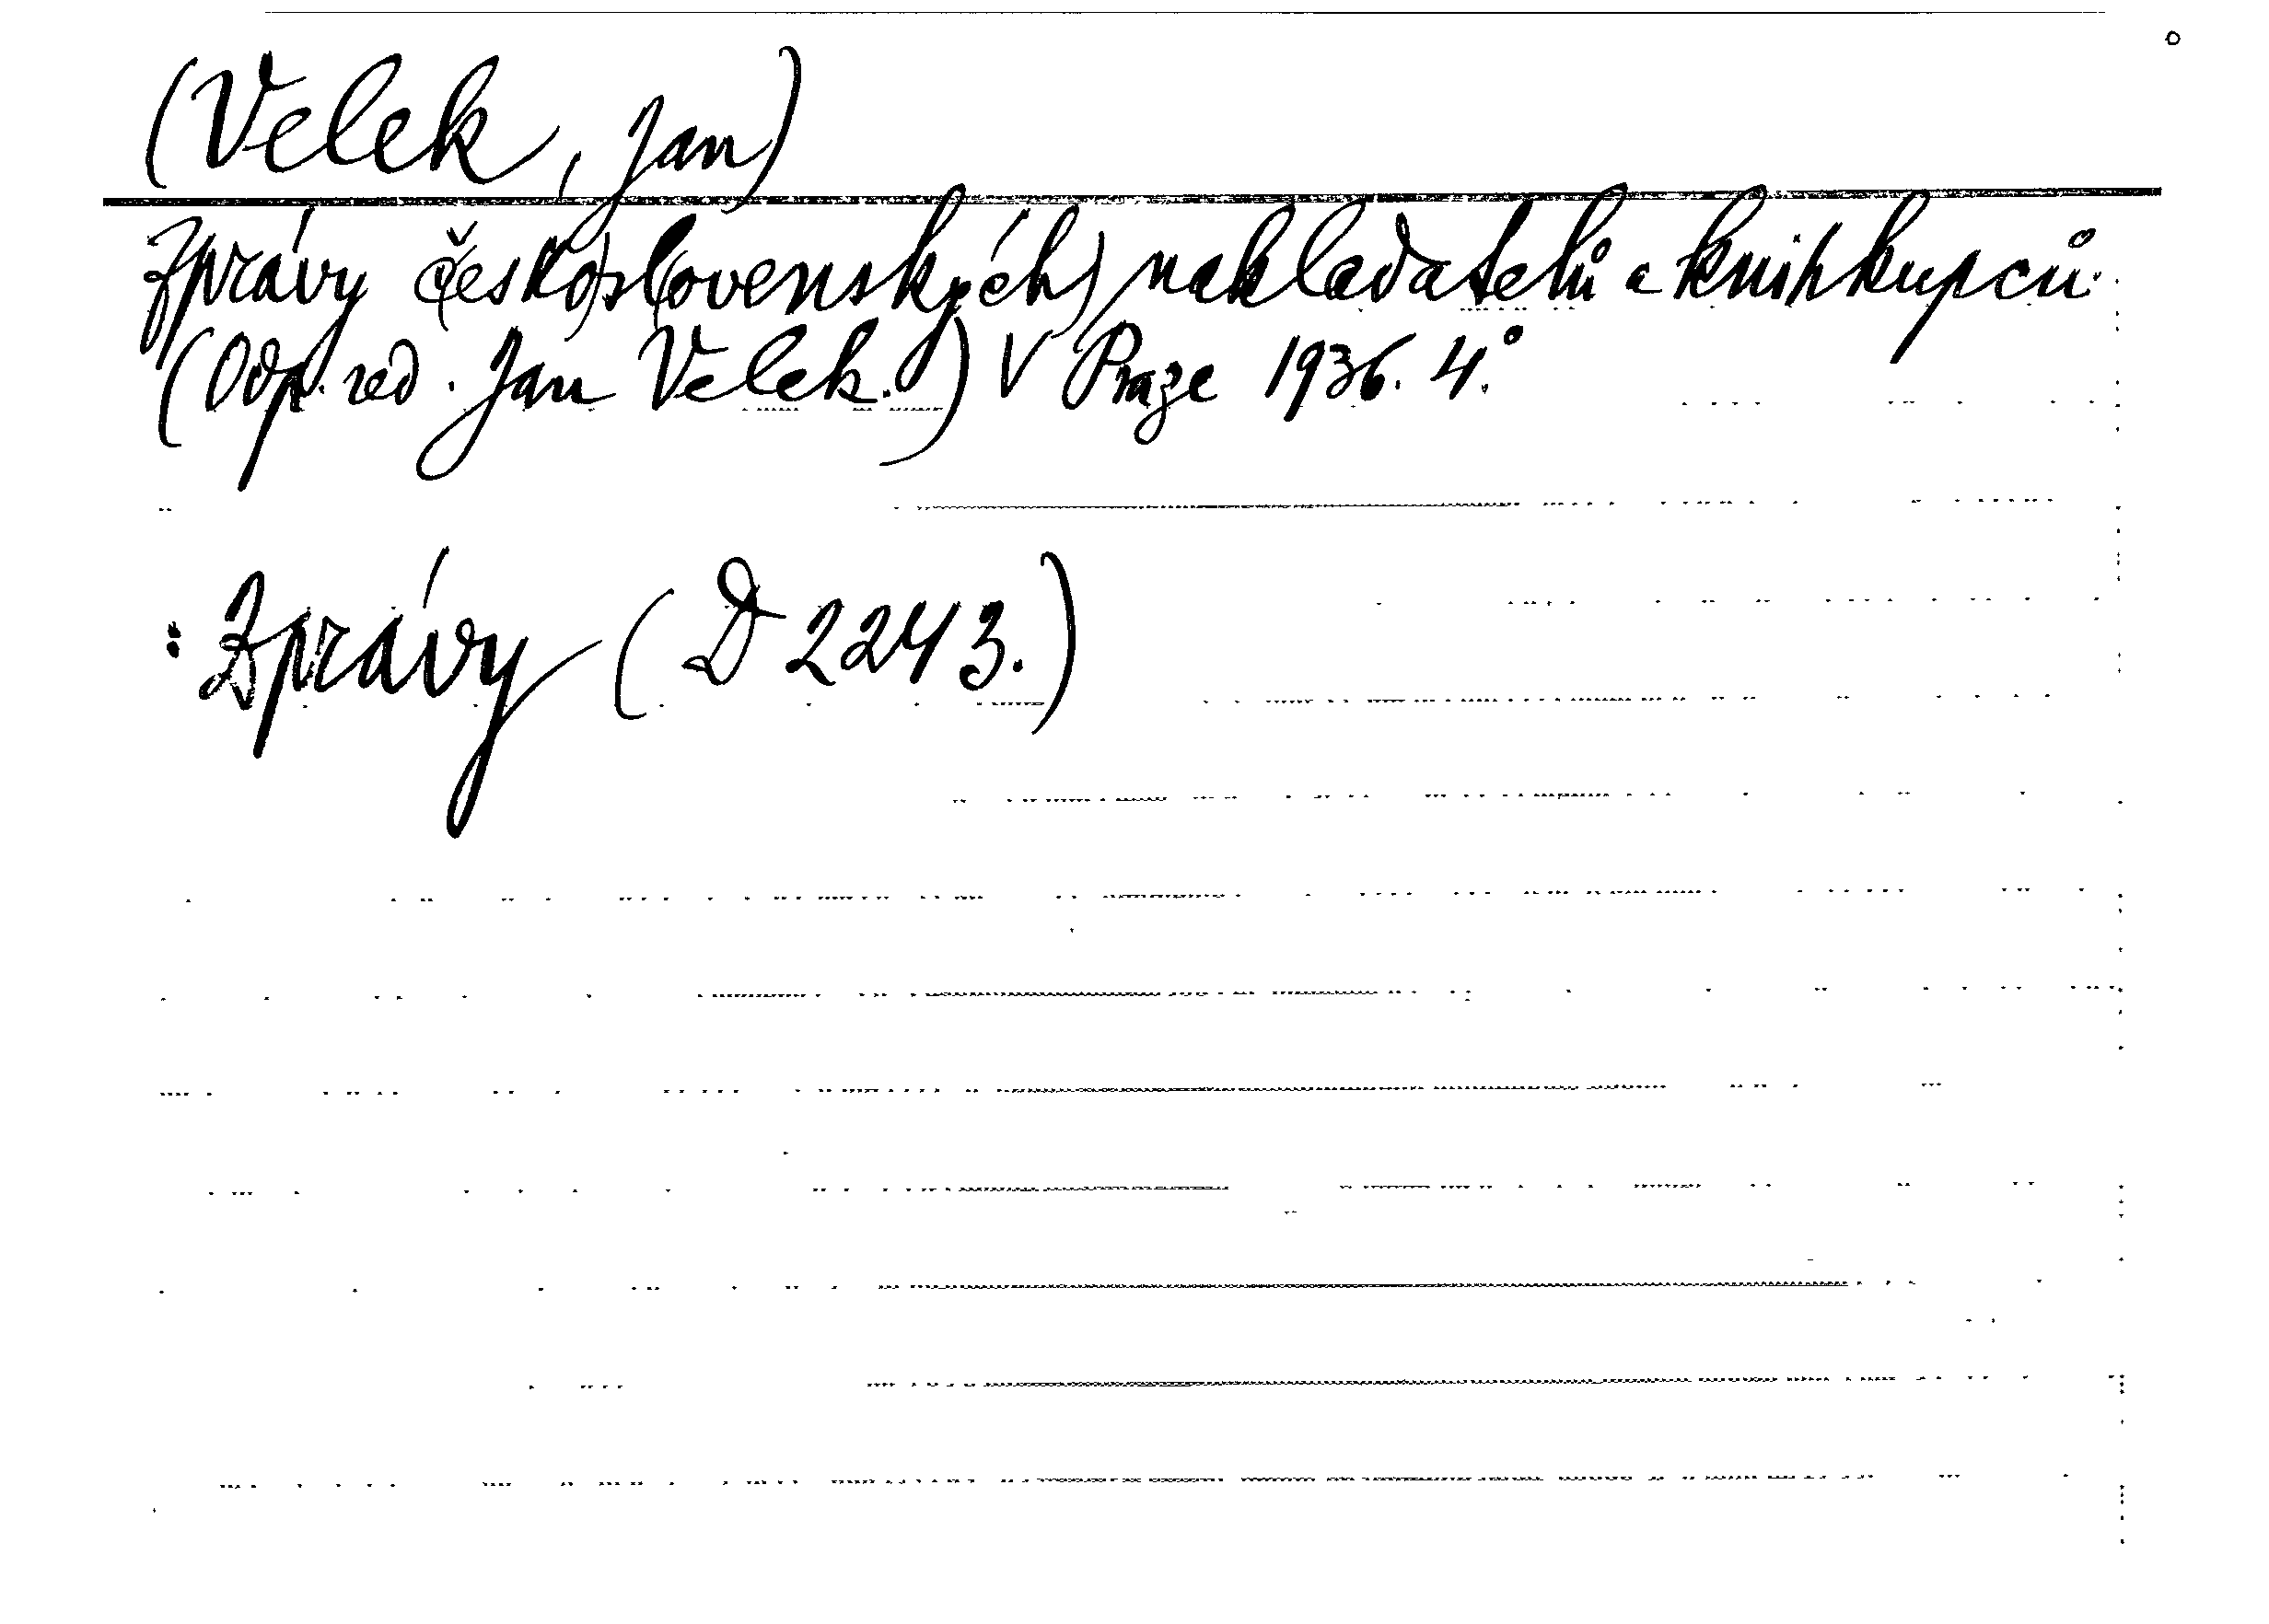 (Velek, Jan)
Zprávy (česko)slo(venských) nakladatelů a knihkupců.
(Odp. red. Jan Velek.) V Praze 1936. 4°.
: Zprávy (D 2243.)